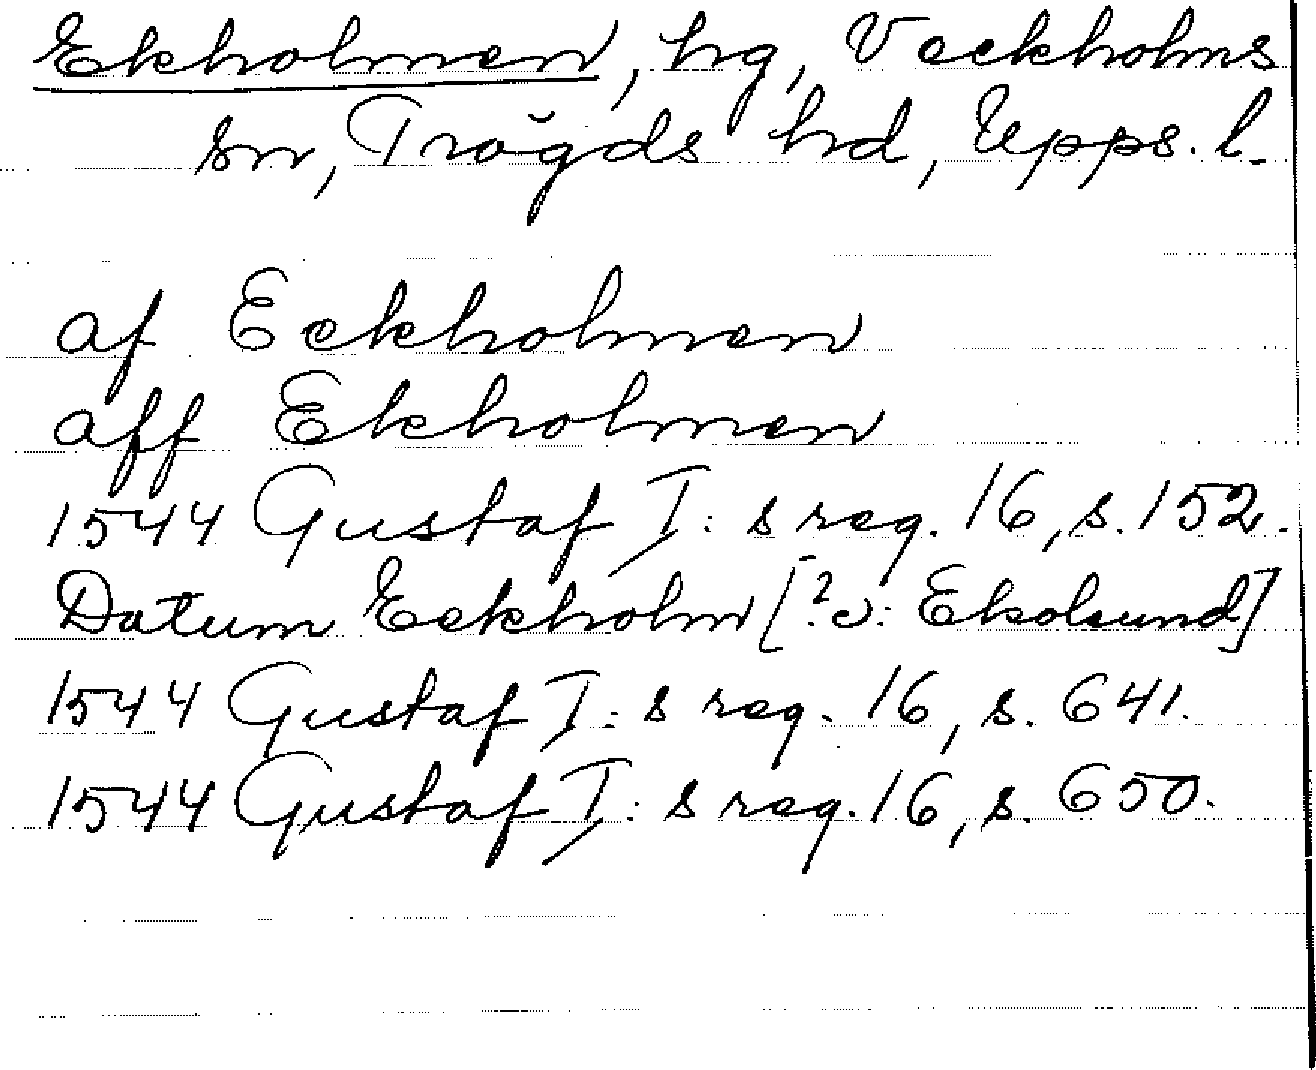 Ekholmen, hg, Veckholms
sn, Trögds hd, Upps. l.
af Eckholmen
aff Ekholmen
1544 Gustaf I: s reg. 16, s. 152.
Datum Eckholm [? o: Ekolsund]
1544 Gustaf I: s reg. 16, s. 641.
1544 Gustaf I: s reg. 16, s. 650.